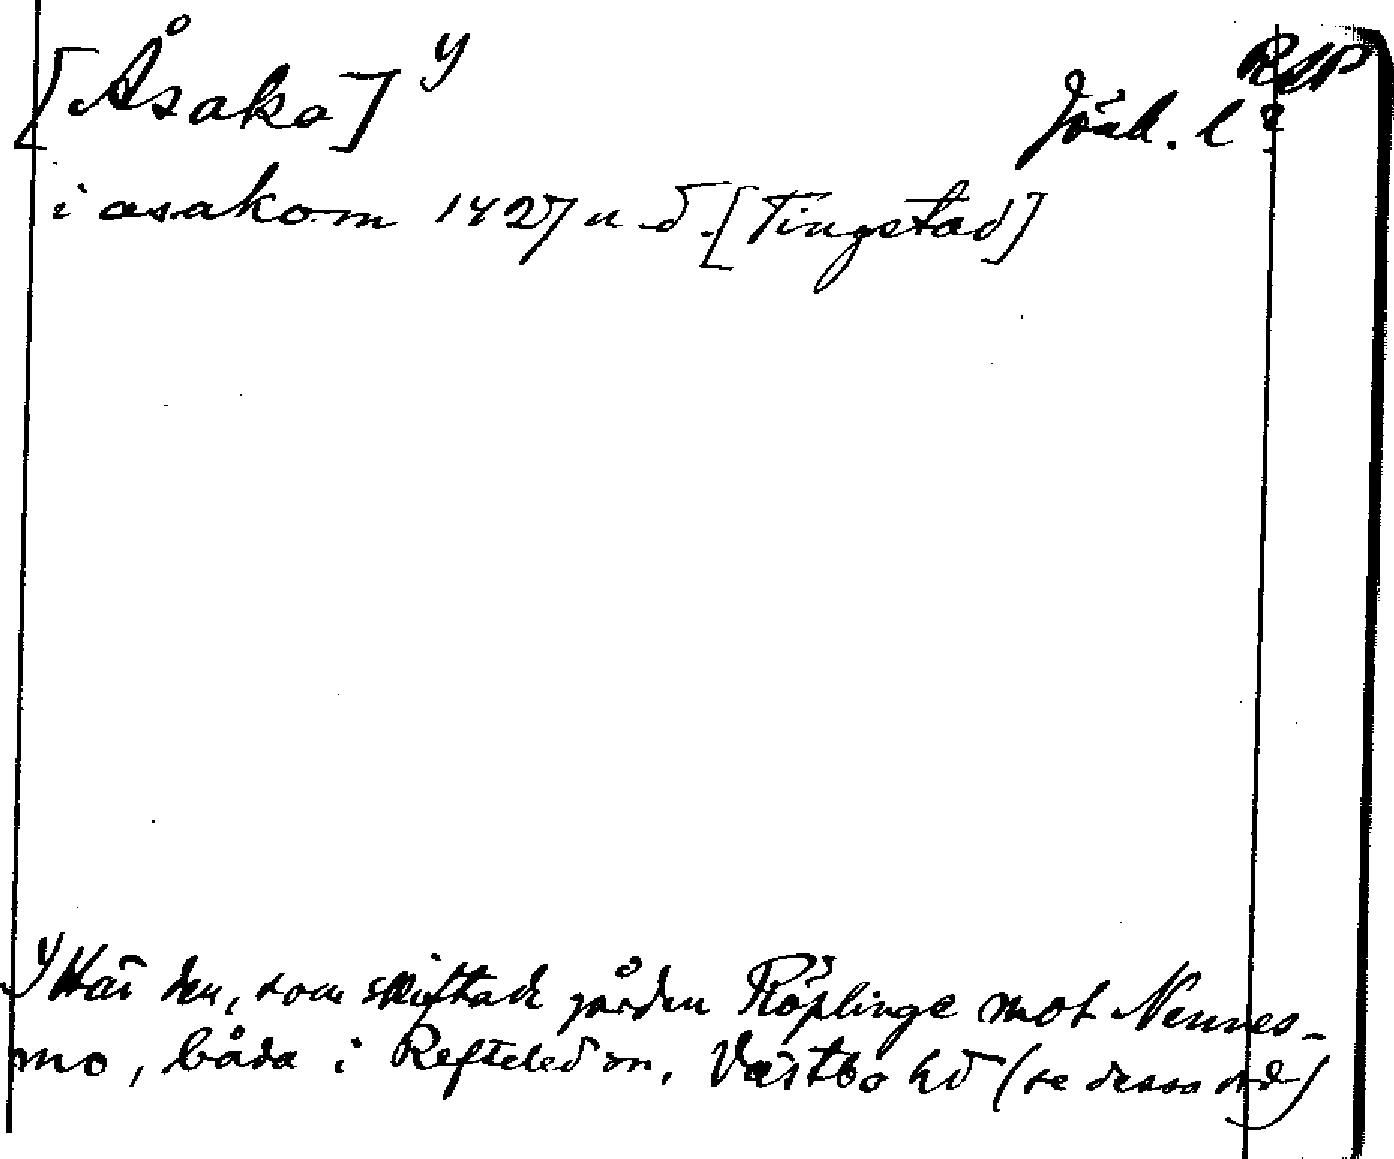 [Åsaka] 1) RAP
Jönk. l ?
i asakom 1427 u d. [Tingstad]
1) Här den, som skiftade gården Röplinge mot Nennes-
mo, båda i Reftele sn, Västbo hd (se dessa ord)